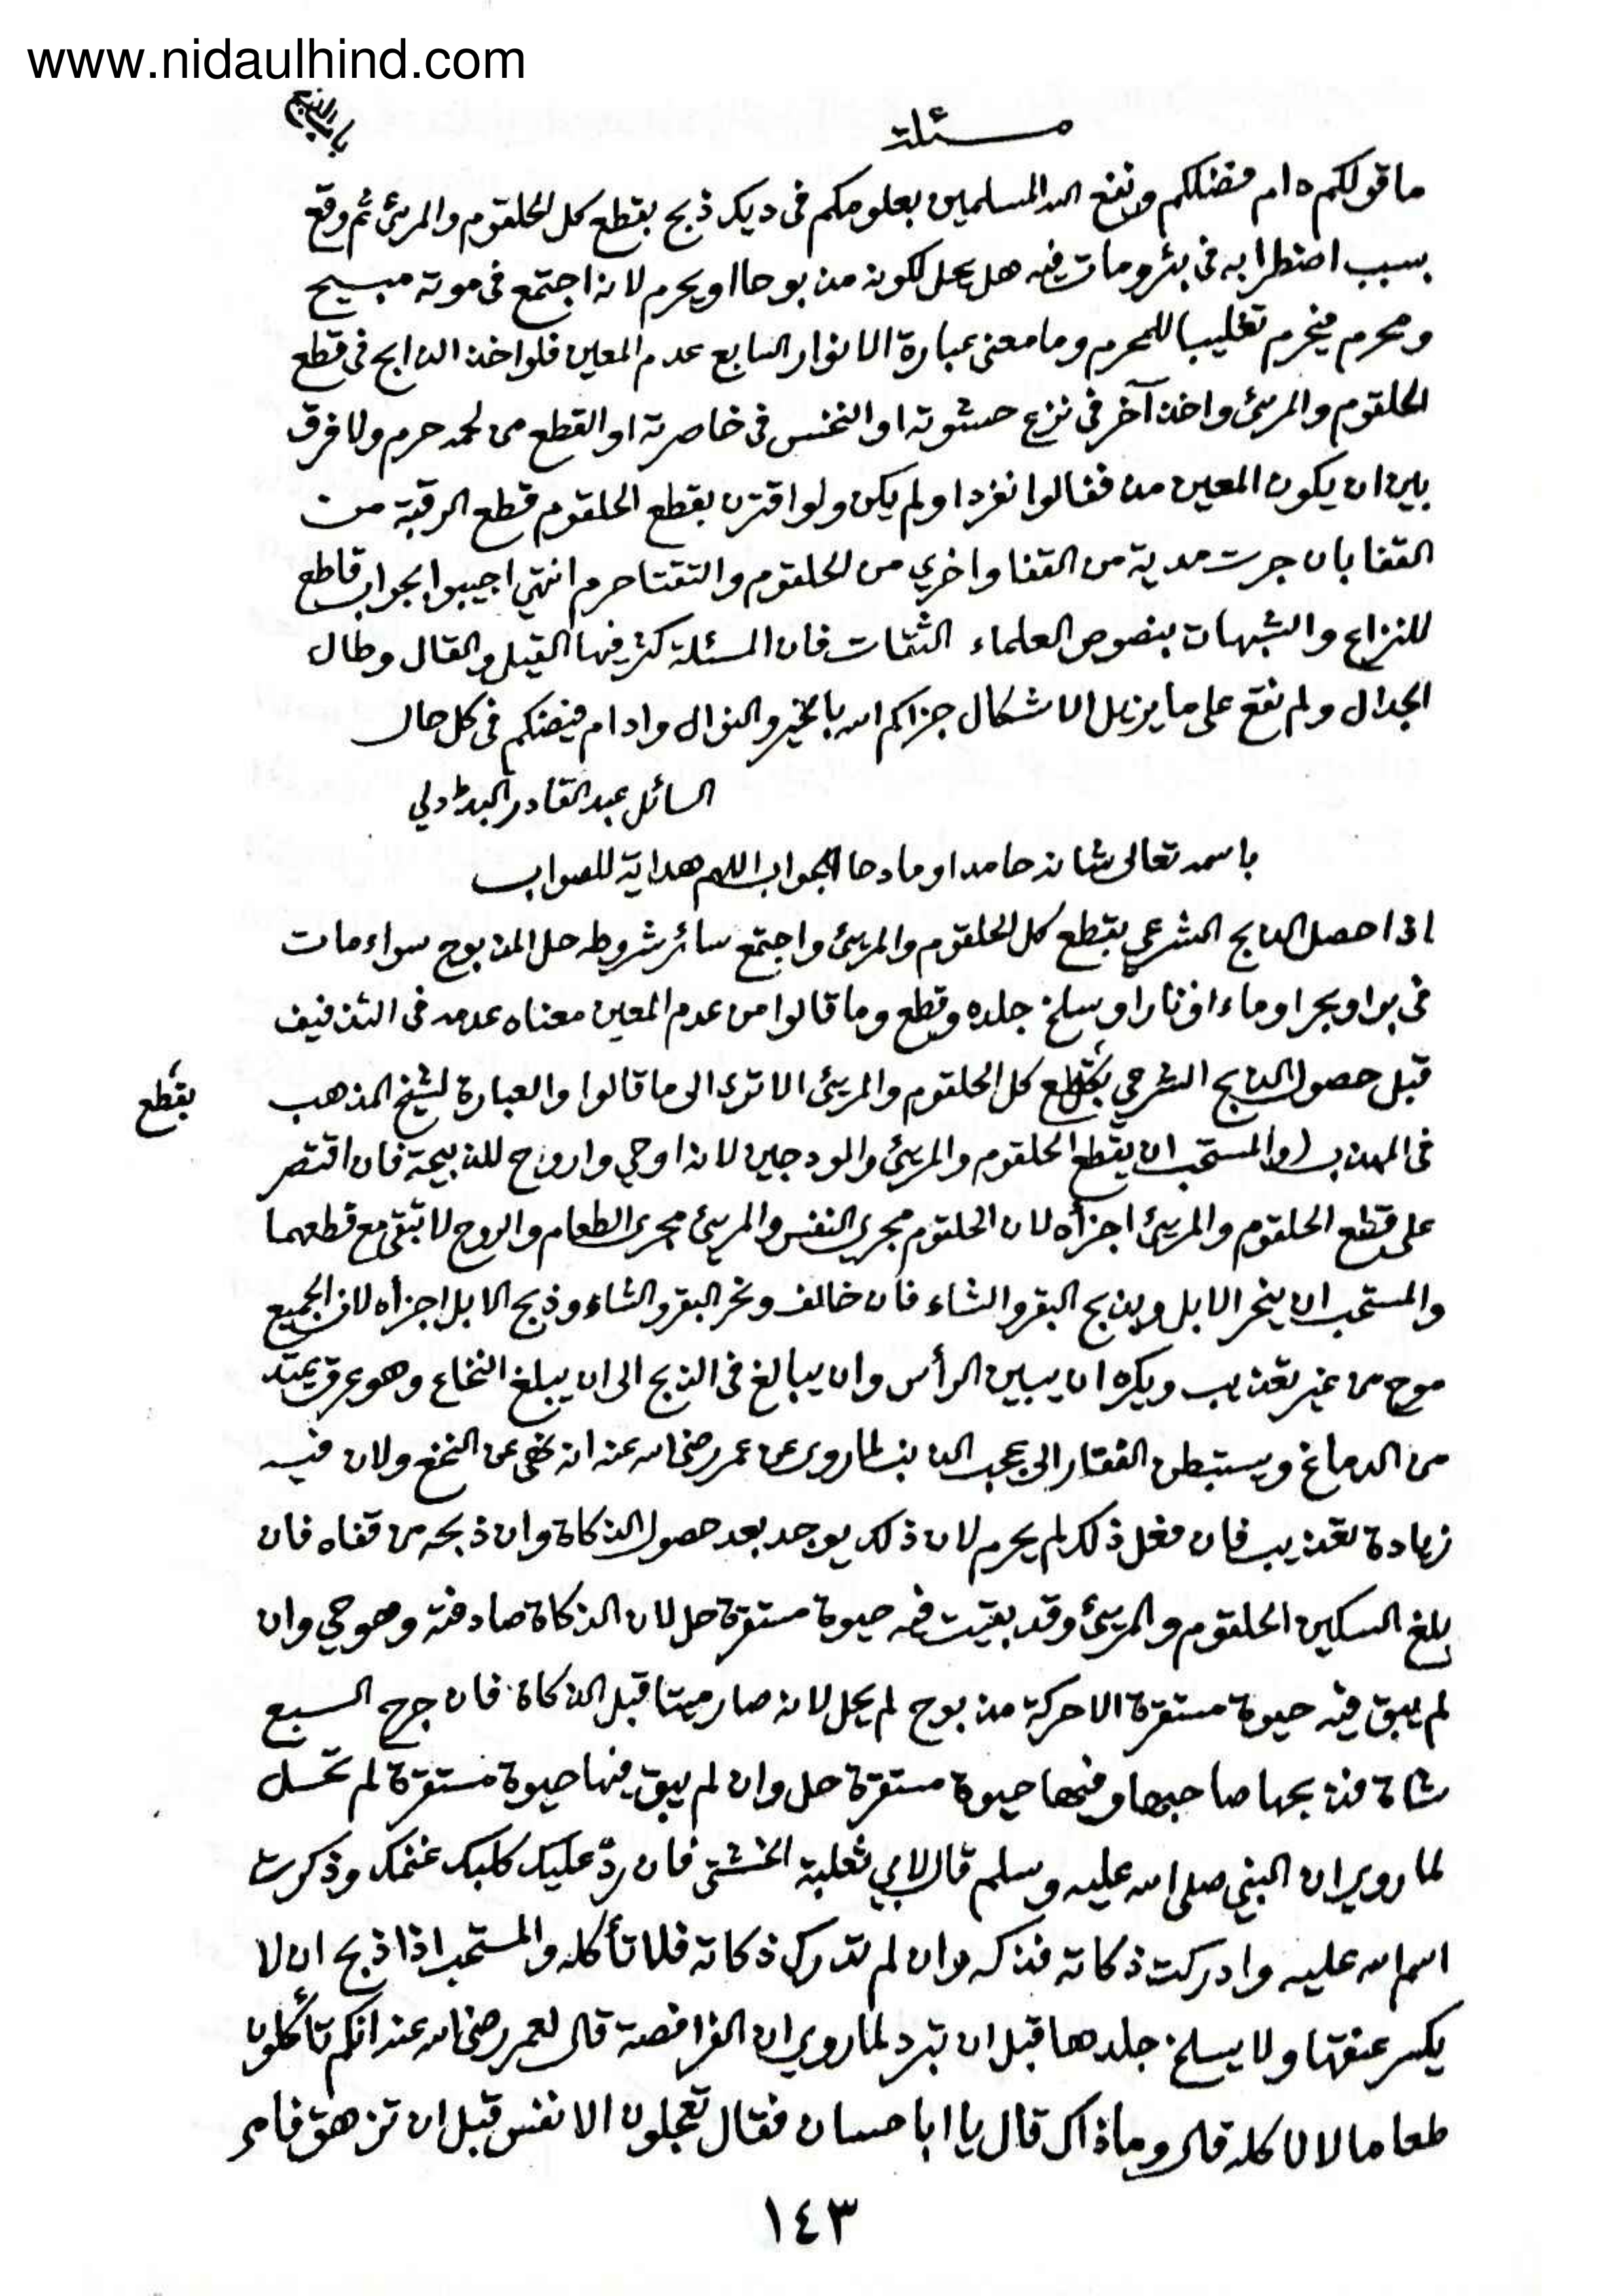 www.nidaulhind.com
باب الذبح
مسئلة
ما قولكم دام فضلكم ونفع الله المسلمين بعلومكم فى ديك ذبح بقطع كل الحلقوم والمرئ ثم وقع
بسبب اضطرابه فى بئر ومات فيه هل يحل لكونه مذبوحا او يحرم لانه اجتمع فى موته مبيح
ومحرم فيحرم تغليبا للمحرم وما معنى عبارة الانوار السابع عدم المعين فلو اخذ الذابح فى قطع
الحلقوم والمرئ واخذ آخر فى نزع حشوته او النخس فى خاصرته او القطع من لحمه حرم ولا فرق
بين ان يكون المعين مذففا لو انفرد او لم يكن ولو اقترن بقطع الحلقوم قطع الرقبة من
القفا بان جرت مدية من القفا واخرى من الحلقوم والتقتا حرم انتهى اجيبوا بجواب قاطع
للنزاع والشبهات بنصوص العلماء الثقات فان المسئلة كثر فيها القيل والقال وطال
الجدال ولم نقع على ما يزيل الاشكال جزاكم الله بالخير والنوال وادام فيضكم فى كل حال
السائل عبد القادر البدڑدلي
باسمه تعالى شانه حامدا ومادحا الجواب اللهم هداية للصواب
اذا حصل الذبح الشرعي بقطع كل الحلقوم والمرئ واجتمع سائر شروطه حل المذبوح سواء مات
فى بر او بحر او ماء او نار او سلخ جلده وقطع وما قالوا من عدم المعين معناه عدمه فى التذفيف
قبل حصول الذبح الشرعي بقطع كل الحلقوم والمرئ الا ترى الى ما قالوا والعبارة لشيخ المذهب
بقطع
فى المهذب (والمستحب ان يقطع الحلقوم والمرئ والودجين لانه اوحي واروح للذبيحة فان اقتصر
على قطع الحلقوم والمرئ اجزأه لان الحلقوم مجرى النفس والمرئ مجرى الطعام والروح لا تبقى مع قطعهما
والمستحب ان ينحر الابل ويذبح البقر والشاء فان خالف ونحر البقر والشاء وذبح الابل اجزأه لان الجميع
موح من غير تعذيب ويكره ان يبين الرأس وان يبالغ فى الذبح الى ان يبلغ النخاع وهو عرق يمتد
من الدماغ ويستبطن الفقار الى عجب الذنب لما روى عن عمر رضى الله عنه انه نهى عن النخع ولان فيه
زيادة تعذيب فان فعل ذلك لم يحرم لان ذلك يوجد بعد حصول الذكاة وان ذبحه من قفاه فان
بلغ السكين الحلقوم والمرئ وقد بقيت فيه حيوة مستقرة حل لان الذكاة صادفته وهو حي وان
لم يبق فيه حيوة مستقرة الا حركة مذبوح لم يحل لانه صار ميتا قبل الذكاة فان جرح السبع
شاة فذبحها صاحبها وفيها حيوة مستقرة حل وان لم يبق فيها حيوة مستقرة لم تحل
لما روي ان النبي صلى الله عليه وسلم قال لابي ثعلبة الخشني فان ردّ عليك كلبك غنمك وذكرت
اسم الله عليه وادركت ذكاته فذكه وان لم تدرك ذكاته فلا تأكله والمستحب اذا ذبح ان لا
يكسر عنقها ولا يسلخ جلدها قبل ان تبرد لما روي ان الفرافصة قال لعمر رضى الله عنه انكم تأكلون
طعاما لا نأكله قال وما ذاك قال يا ابا حسان فقال تعجلون الانفس قبل ان تزهق فامر
١٤٣